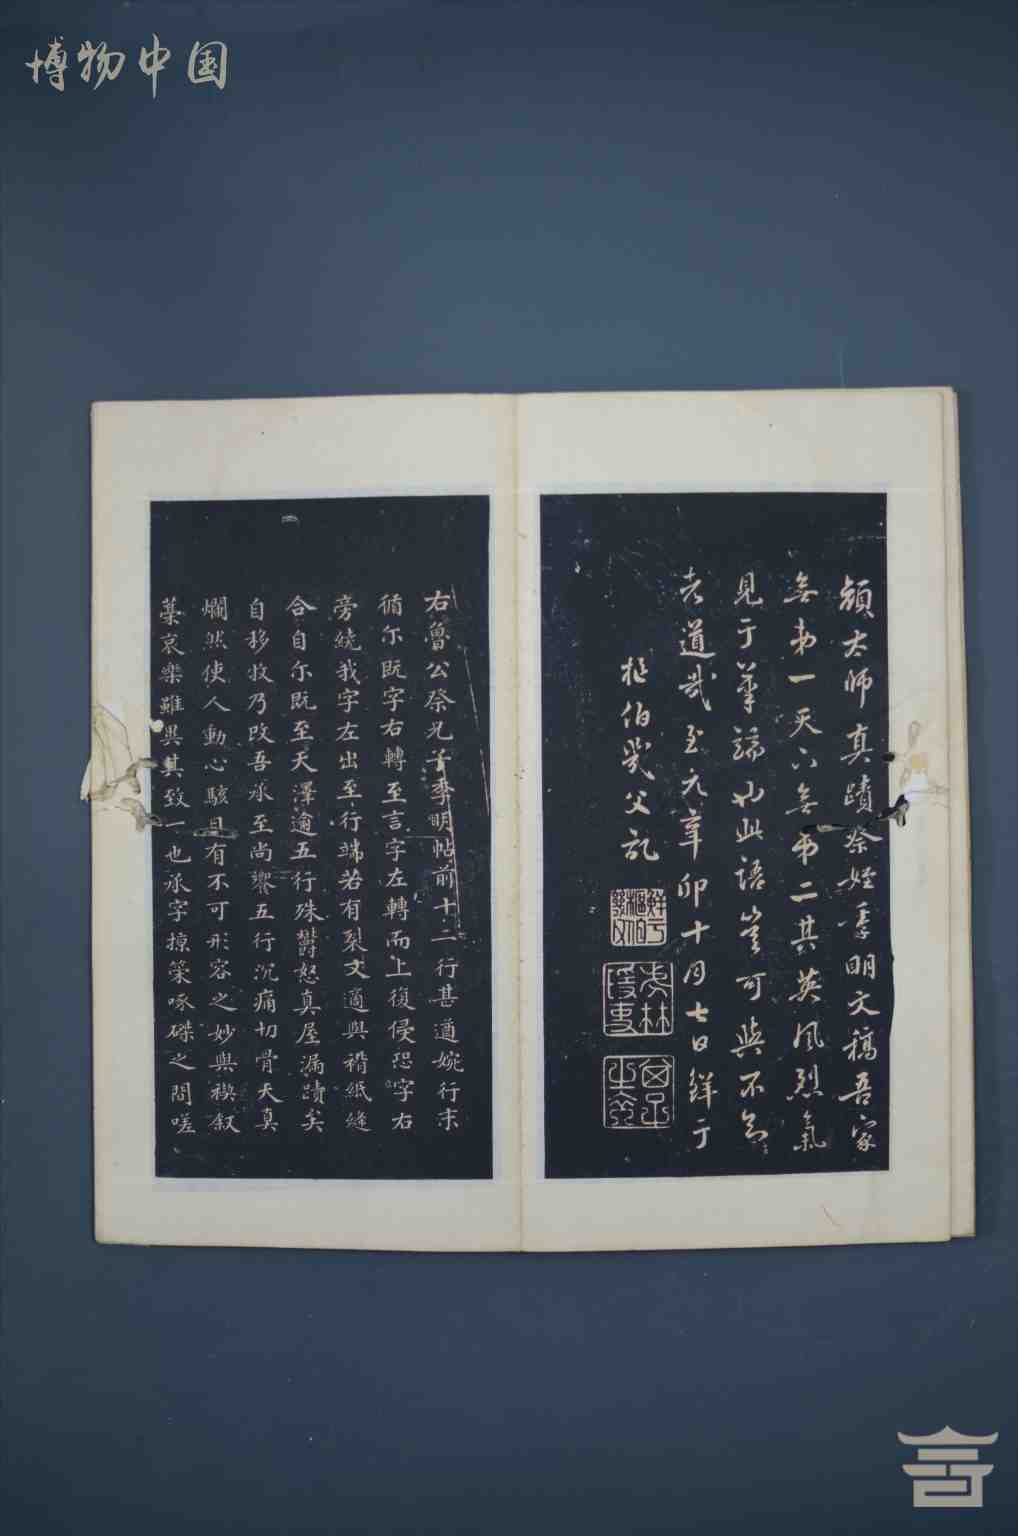 博物中国
顏太師真蹟祭姪季明文稿吾家
無第一天下無第二其英風烈氣
見于筆端也此語豈可與不知
者道哉至元辛卯十月七日鮮于
樞伯幾父記
鮮于樞伯幾父
虎林隱吏
右魯公祭兄子季明帖前十二行甚遒婉行末
循尔既字右轉至言字左轉而上復侵恐字右
旁繞我字左出至行端若有裂文適與褙紙縫
合自尔既至天澤逾五行殊鬱怒真屋漏蹟矣
自移牧乃改吾承至尚饗五行沉痛切骨天真
爛然使人動心駭目有不可形容之妙與禊叙
藁哀樂雖異其致一也承字掠策啄磔之間嗟